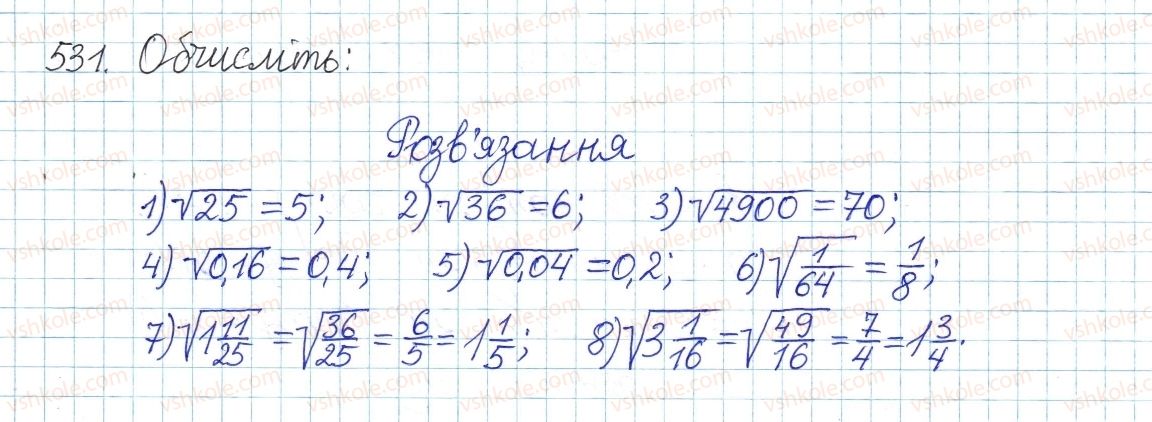 531. Обчисліть:
Розв'язання
1) √25 = 5; 2) √36 = 6; 3) √4900 = 70;
4) √0,16 = 0,4; 5) √0,04 = 0,2; 6) √(1/64) = 1/8;
7) √(1 11/25) = √(36/25) = 6/5 = 1 1/5; 8) √(3 1/16) = √(49/16) = 7/4 = 1 3/4.